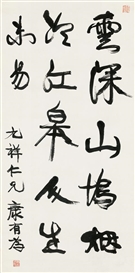 雲深山塢烟
冷江皋人生
未易
祥仁兄 康有為